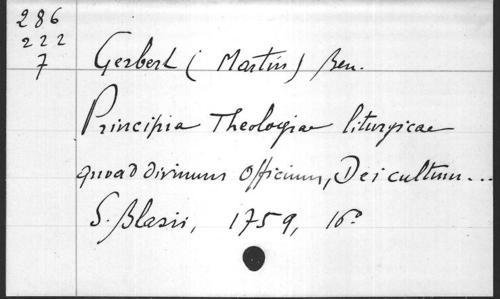 286
222
7
Gerbert (Martin) Ben.
Principia Theologiae liturgicae
quoad divinum officium, Dei cultum...
S. Blasii, 1759, 16°